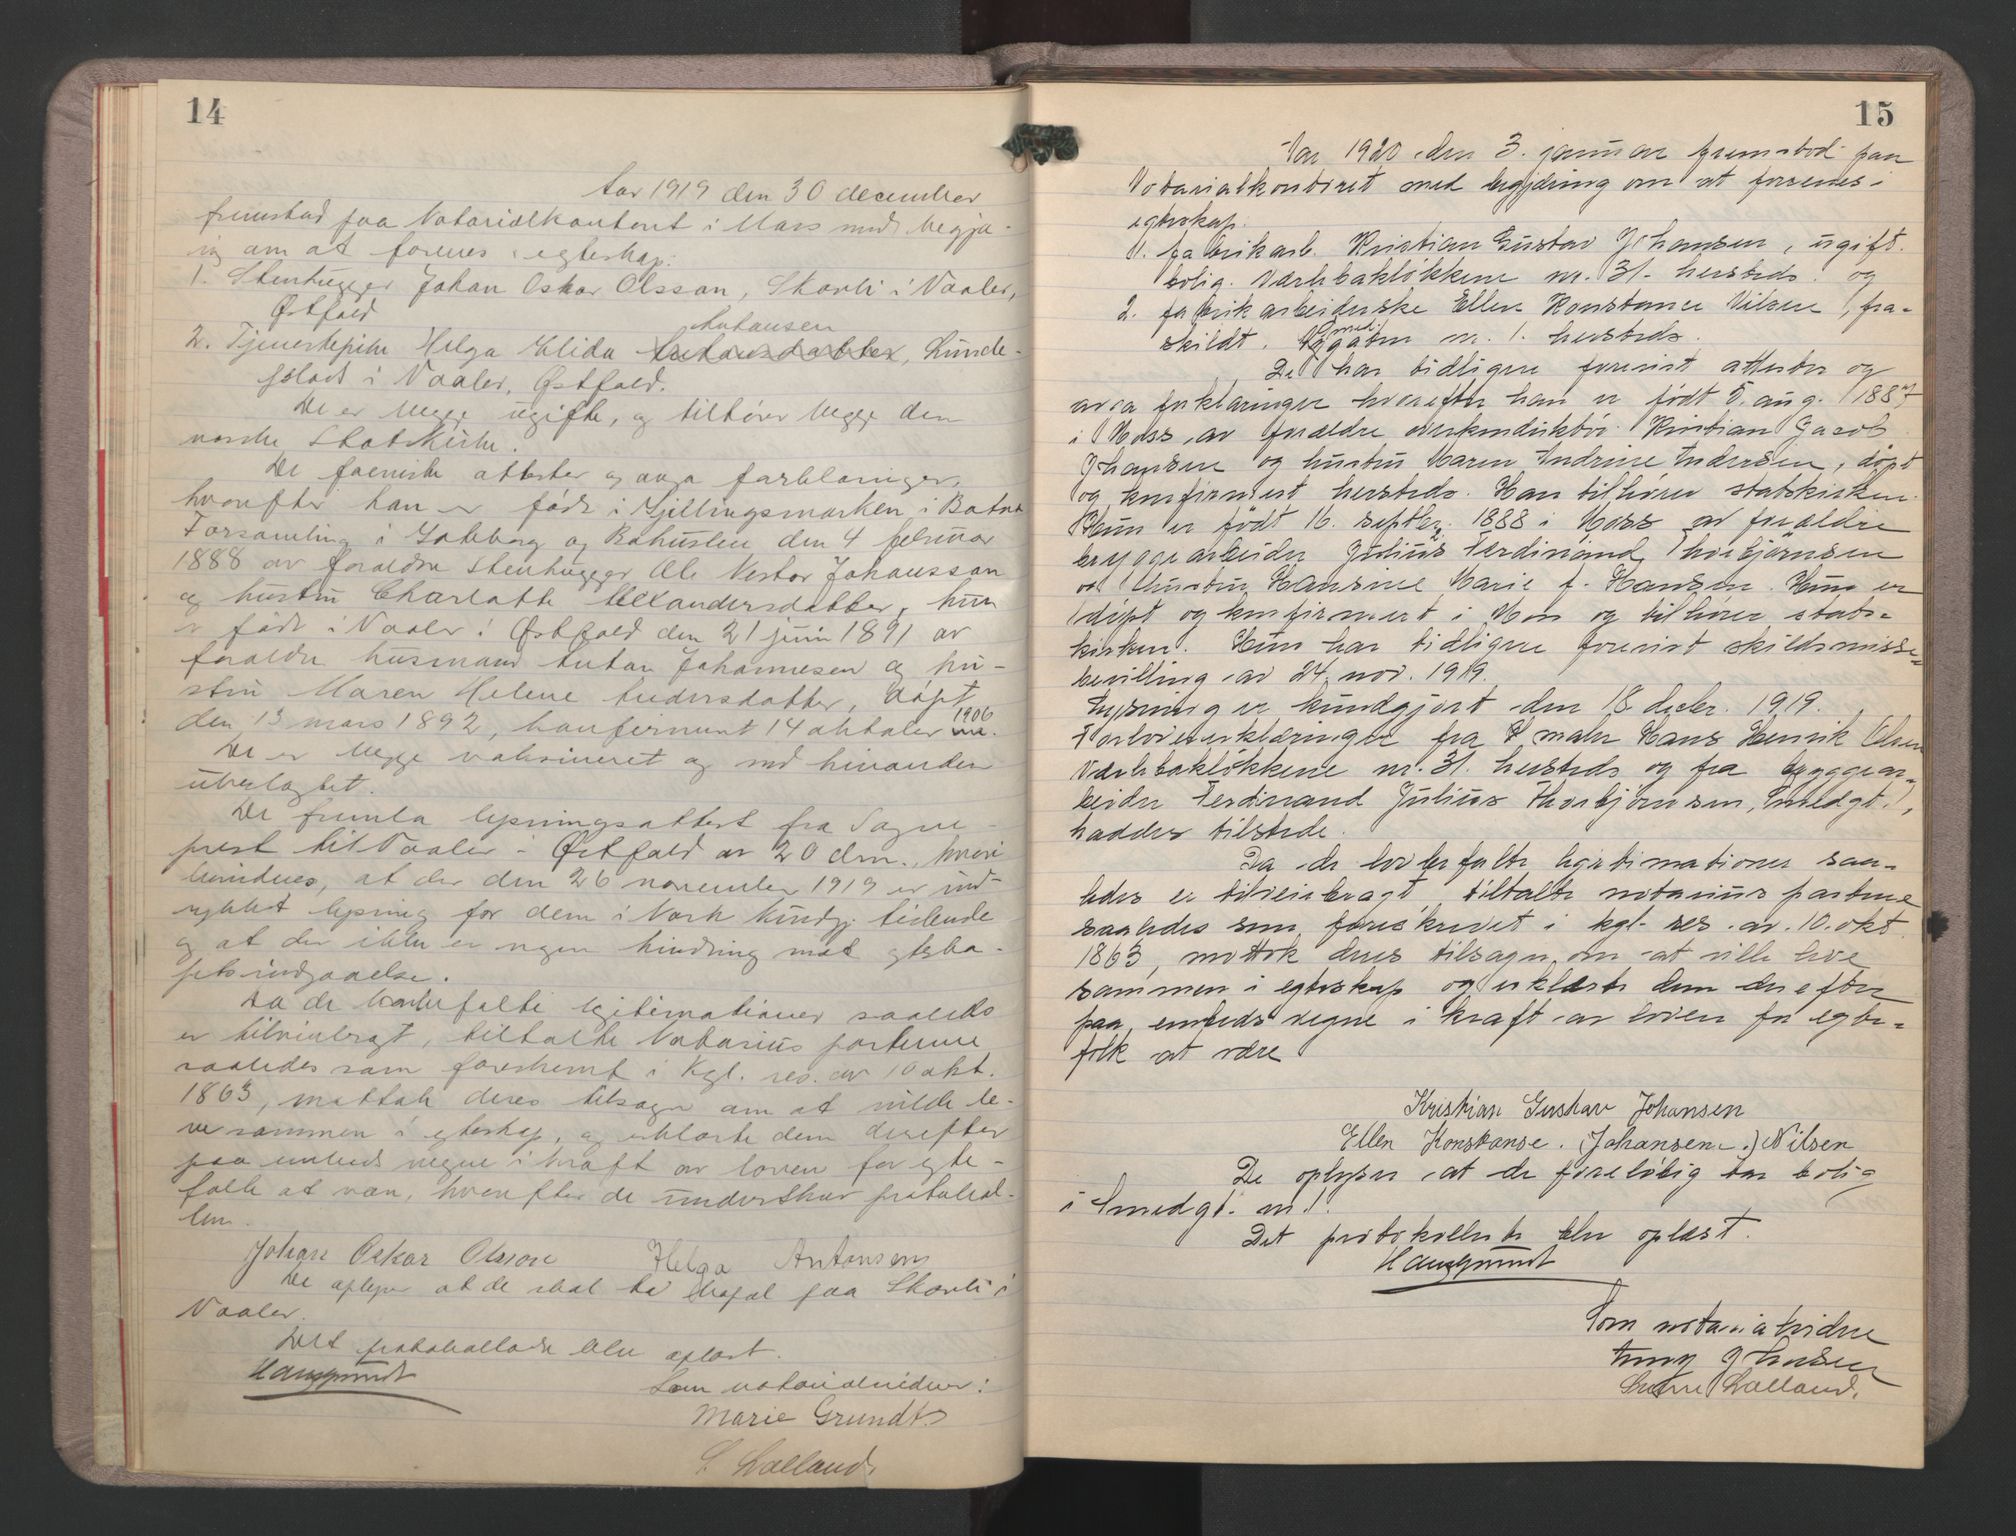 14
Aar 1919 den 30 december
fremstod paa Notarialkontoret i Moss med begjæ-
ring om at forenes i egteskap:
1. Stenhugger Johan Oskar Olsson, Skarli i Vaaler,
Østfold
Antonsen
2. Tjenestepike Helga Elida Antonsdatter, Lunde-
plads i Vaaler, Østfold.
De er begge ugifte, og tilhører begge den
norske Statskirke.
De foreviste attester og avga forklaringer,
hvorefter han er født i Gjillingsmarken i Batna
Forsamling i Gøteborg og Bohuslen den 4 februar
1888 av forældre stenhugger Ole Nestor Johansson
og hustru Charlotte Alexandersdatter, hun
er født i Vaaler i Østfold den 21 juni 1891 av
forældre husmand Anton Johannesen og hu-
stru Maren Helene Andersdatter, døpt
den 13 mars 1892, konfirmert 14 oktober 1906
De er begge vaksineret og med hinanden
ubeslægtet.
De fremla lysningsattest fra Sogne-
prest til Vaaler i Østfold av 20 dm., hvori
bevidnes, at der den 26 november 1919 er ind-
rykket lysning for dem i Norsk Kundgj. tidende
og at der ikke er nogen hindring mot egteska-
pets indgaaelse.
Da de lovbefalte legitimationer saaledes
er tilveiebragt, tiltalte Notarius parterne
saaledes som foreskrevet i Kgl. res. av 10 okt.
1863, mottok deres tilsagn om at ville le-
ve sammen i egteskap, og erklærte dem derefter
paa embeds vegne i kraft av loven for egte-
folk at være, hvorefter de underskrev protokol-
len.
Johan Oskar Olsson Helga Antonsen
De oplyser at de skal ta bopæl paa Skarli i
Vaaler.
Det protokollerte blev oplæst.
Haugsrundt
Som notarialvidner:
Marie Grundt
S. Lolland.
15
Aar 1920 den 3. januar fremstod paa
Notarialkontoret med begjæring om at forenes i
egteskap.
1. fabrikarb. Kristian Gustav Johansen, ugift.
bolig. Værksbakløkkene nr. 31. hersteds. og
2. fabrikarbeiderske Ellen Konstance Nilsen, fra-
skildt. Smedgaten nr. 1. hersteds.
De har tidligere forevist attester og
avga forklaringer hvorefter han er født 5. aug. 1887
i Moss, av forældre overkonduktør Kristian Jacob
Johansen og hustru Maren Andrine Andersen, døpt
og konfirmert hersteds. Han tilhører statskirken.
Hun er født 16. septbr. 1888 i Moss av forældre
bryggearbeider Julius Ferdinand Thorbjørnsen
og hustru Hansine Marie f. Hansen. Hun er
døpt og konfirmert i Moss og tilhører stats-
kirken. Hun har tidligere forevist skildsmisse-
bevilling av 24. nov. 1919.
Lysning er kundgjort den 18. decbr. 1919.
Forlovererklæringer fra maler Hans Henrik Olsen
Værksbakløkkene nr. 31. hersteds og fra byggear-
beider Ferdinand Julius Thorbjørnsen, Smedgt. 1,
haddes tilstede.
Da de lovbefalte legitimationer saa-
ledes er tilveiebragt, tiltalte notarius parterne
saaledes som foreskrevet i kgl. res. av. 10. okt.
1863, mottok deres tilsagn om at ville leve
sammen i egteskap og erklærte dem derefter
paa embeds vegne i kraft av loven for egte-
folk at være
Kristian Gustav Johansen
Ellen Konstanse. (Johansen.) Nilsen
De oplyser at de foreløbig tar bolig
i Smedgt. nr. 1.
Det protokollerte blev oplæst.
Haugsrundt
Som notarialvidner
Johansen
Lolland.